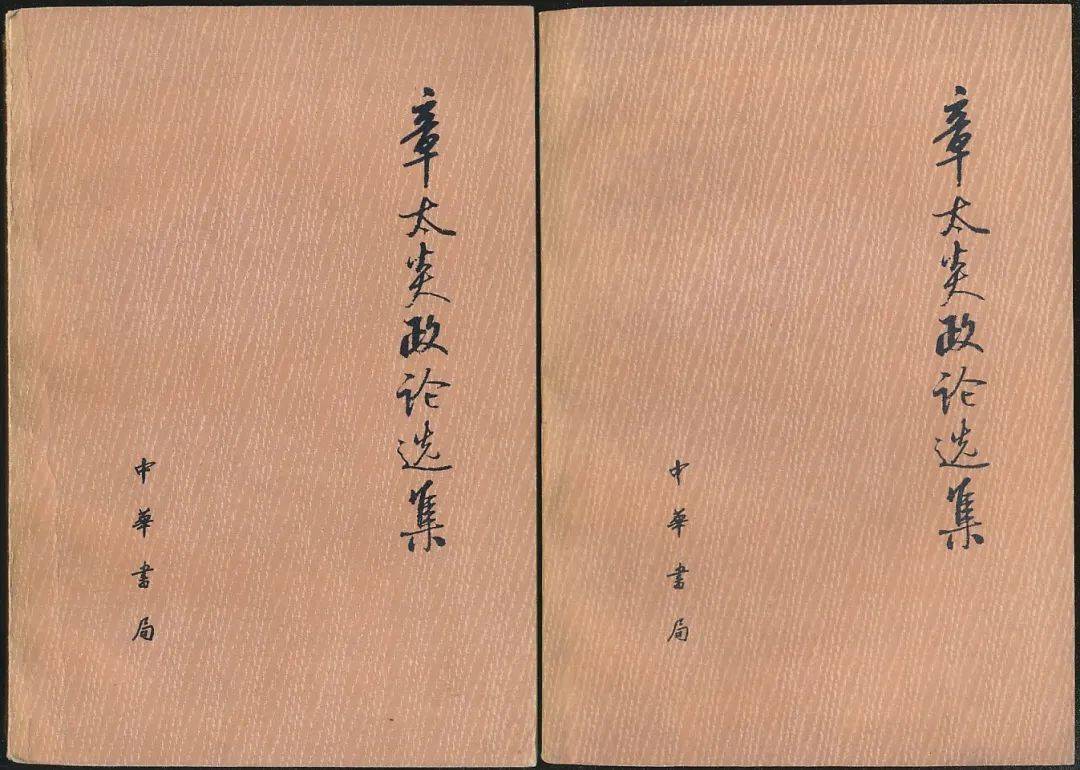 章太炎政论选集
中華書局
章太炎政论选集
中華書局